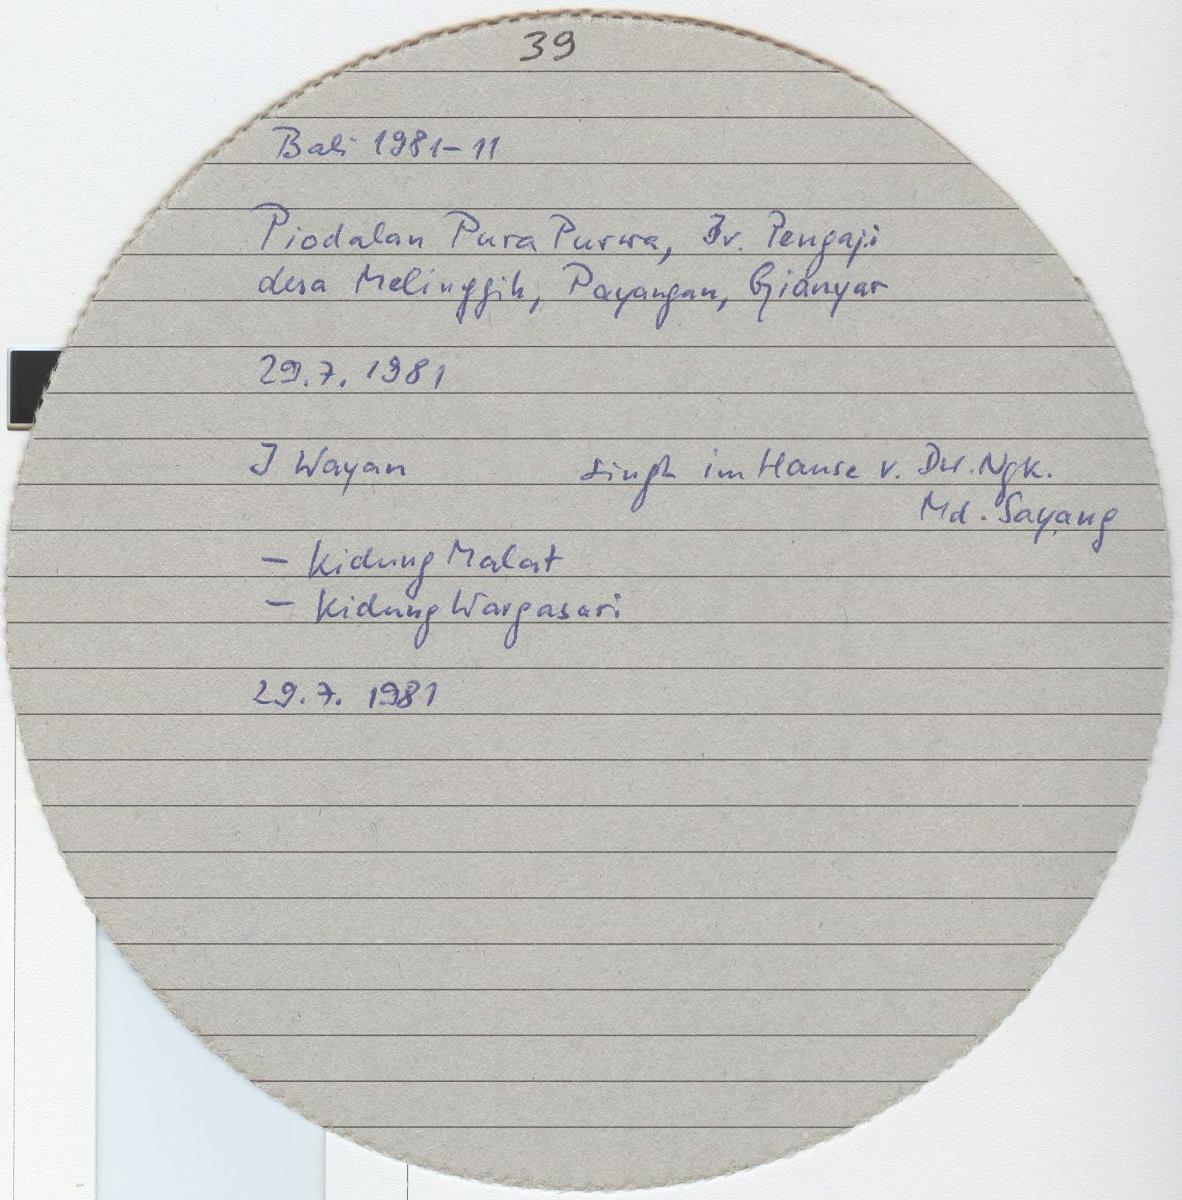 39
Bali 1981-11
Piodalan Pura Purwa, Br. Pengaji
desa Melinggih, Payangan, Gianyar
29.7.1981
I Wayan singt im Hause v. Dw. Ngk.
Md. Sayang
- Kidung Malat
- Kidung Wargasari
29.7.1981